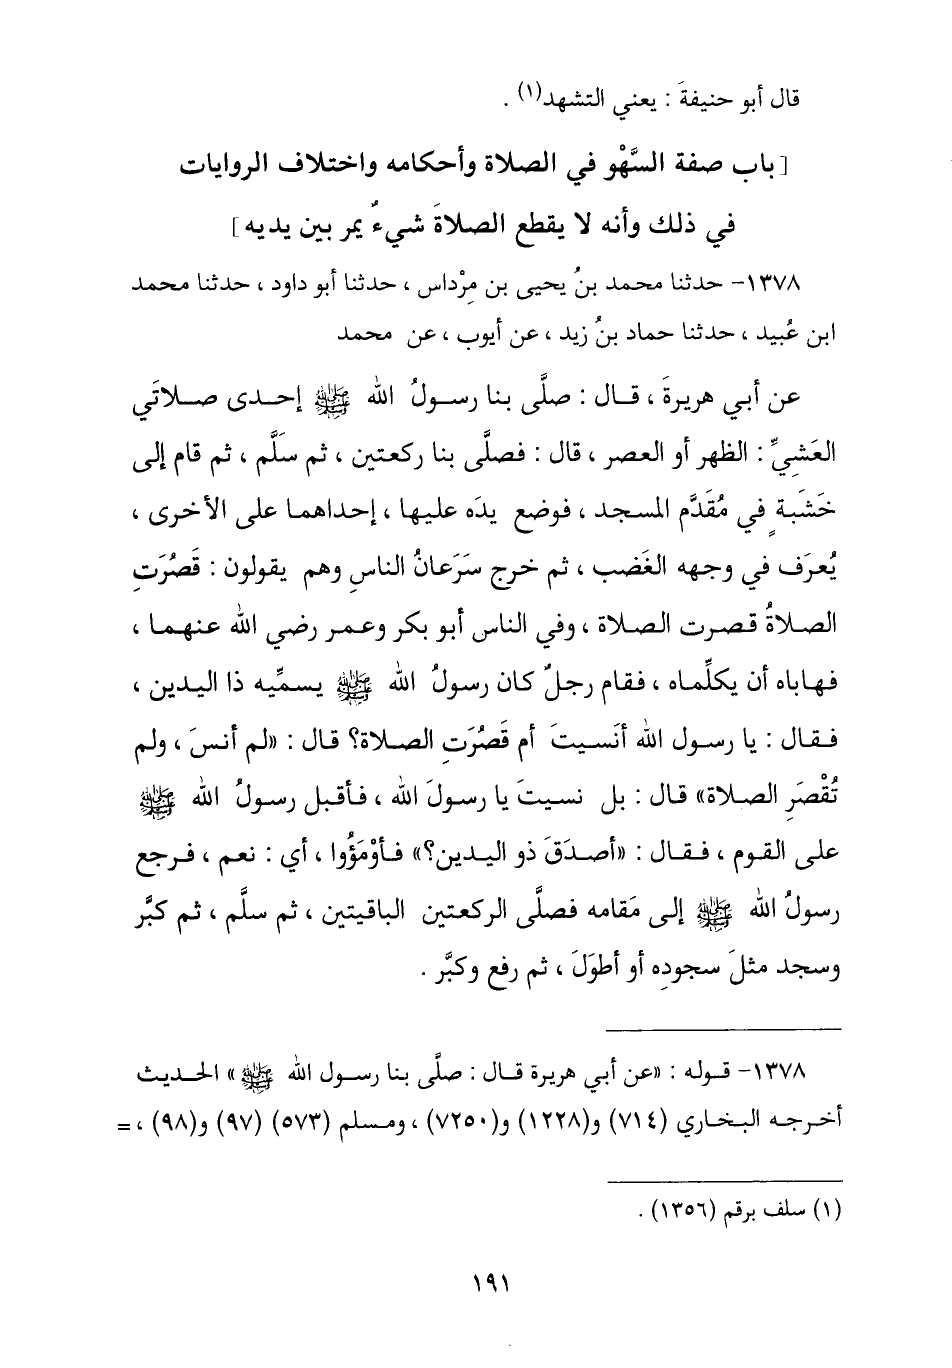 قال أبو حنيفةَ : يعني التشهد(١) .
[ باب صفة السَّهْو في الصلاة وأحكامه واختلاف الروايات
في ذلك وأنه لا يقطع الصلاةَ شيءٌ يمر بين يديه ]
١٣٧٨- حدثنا محمد بنُ يحيى بن مِرْداس ، حدثنا أبو داود ، حدثنا محمد
ابن عُبيد ، حدثنا حماد بنُ زيد ، عن أيوب ، عن محمد
عن أبي هريرةَ ، قال : صلَّى بنا رسولُ الله ﷺ إحدى صلاتَي
العَشيِّ : الظهر أو العصر ، قال : فصلَّى بنا ركعتين ، ثم سَلَّم ، ثم قام إلى
خَشَبةٍ في مُقَدَّم المسجد ، فوضع يدَه عليها ، إحداهما على الأخرى ،
يُعرَف في وجهه الغَضب ، ثم خرج سَرَعانُ الناسِ وهم يقولون : قَصُرَتِ
الصلاةُ قصرت الصلاة ، وفي الناس أبو بكر وعمر رضي الله عنهما ،
فهاباه أن يكلِّماه ، فقام رجلٌ كان رسولُ الله ﷺ يسمِّيه ذا اليدين ،
فقال : يا رسول الله أنَسيتَ أم قَصُرَتِ الصلاة؟ قال : «لم أنسَ ، ولم
تُقْصَرِ الصلاة» قال : بل نسيتَ يا رسولَ الله ، فأقبل رسولُ الله ﷺ
على القوم ، فقال : «أصدَقَ ذو اليدين؟» فأوْمَؤُوا ، أي : نعم ، فرجع
رسولُ الله ﷺ إلى مَقامه فصلَّى الركعتين الباقيتين ، ثم سلَّم ، ثم كبَّر
وسجد مثلَ سجودِه أو أطوَلَ ، ثم رفع وكبَّر .
١٣٧٨- قوله : «عن أبي هريرة قال : صلَّى بنا رسول الله ﷺ» الحديث
أخرجه البخاري (٧١٤) و(١٢٢٨) و(٧٢٥٠) ، ومسلم (٥٧٣) (٩٧) و(٩٨) ، =
(١) سلف برقم (١٣٥٦) .
١٩١